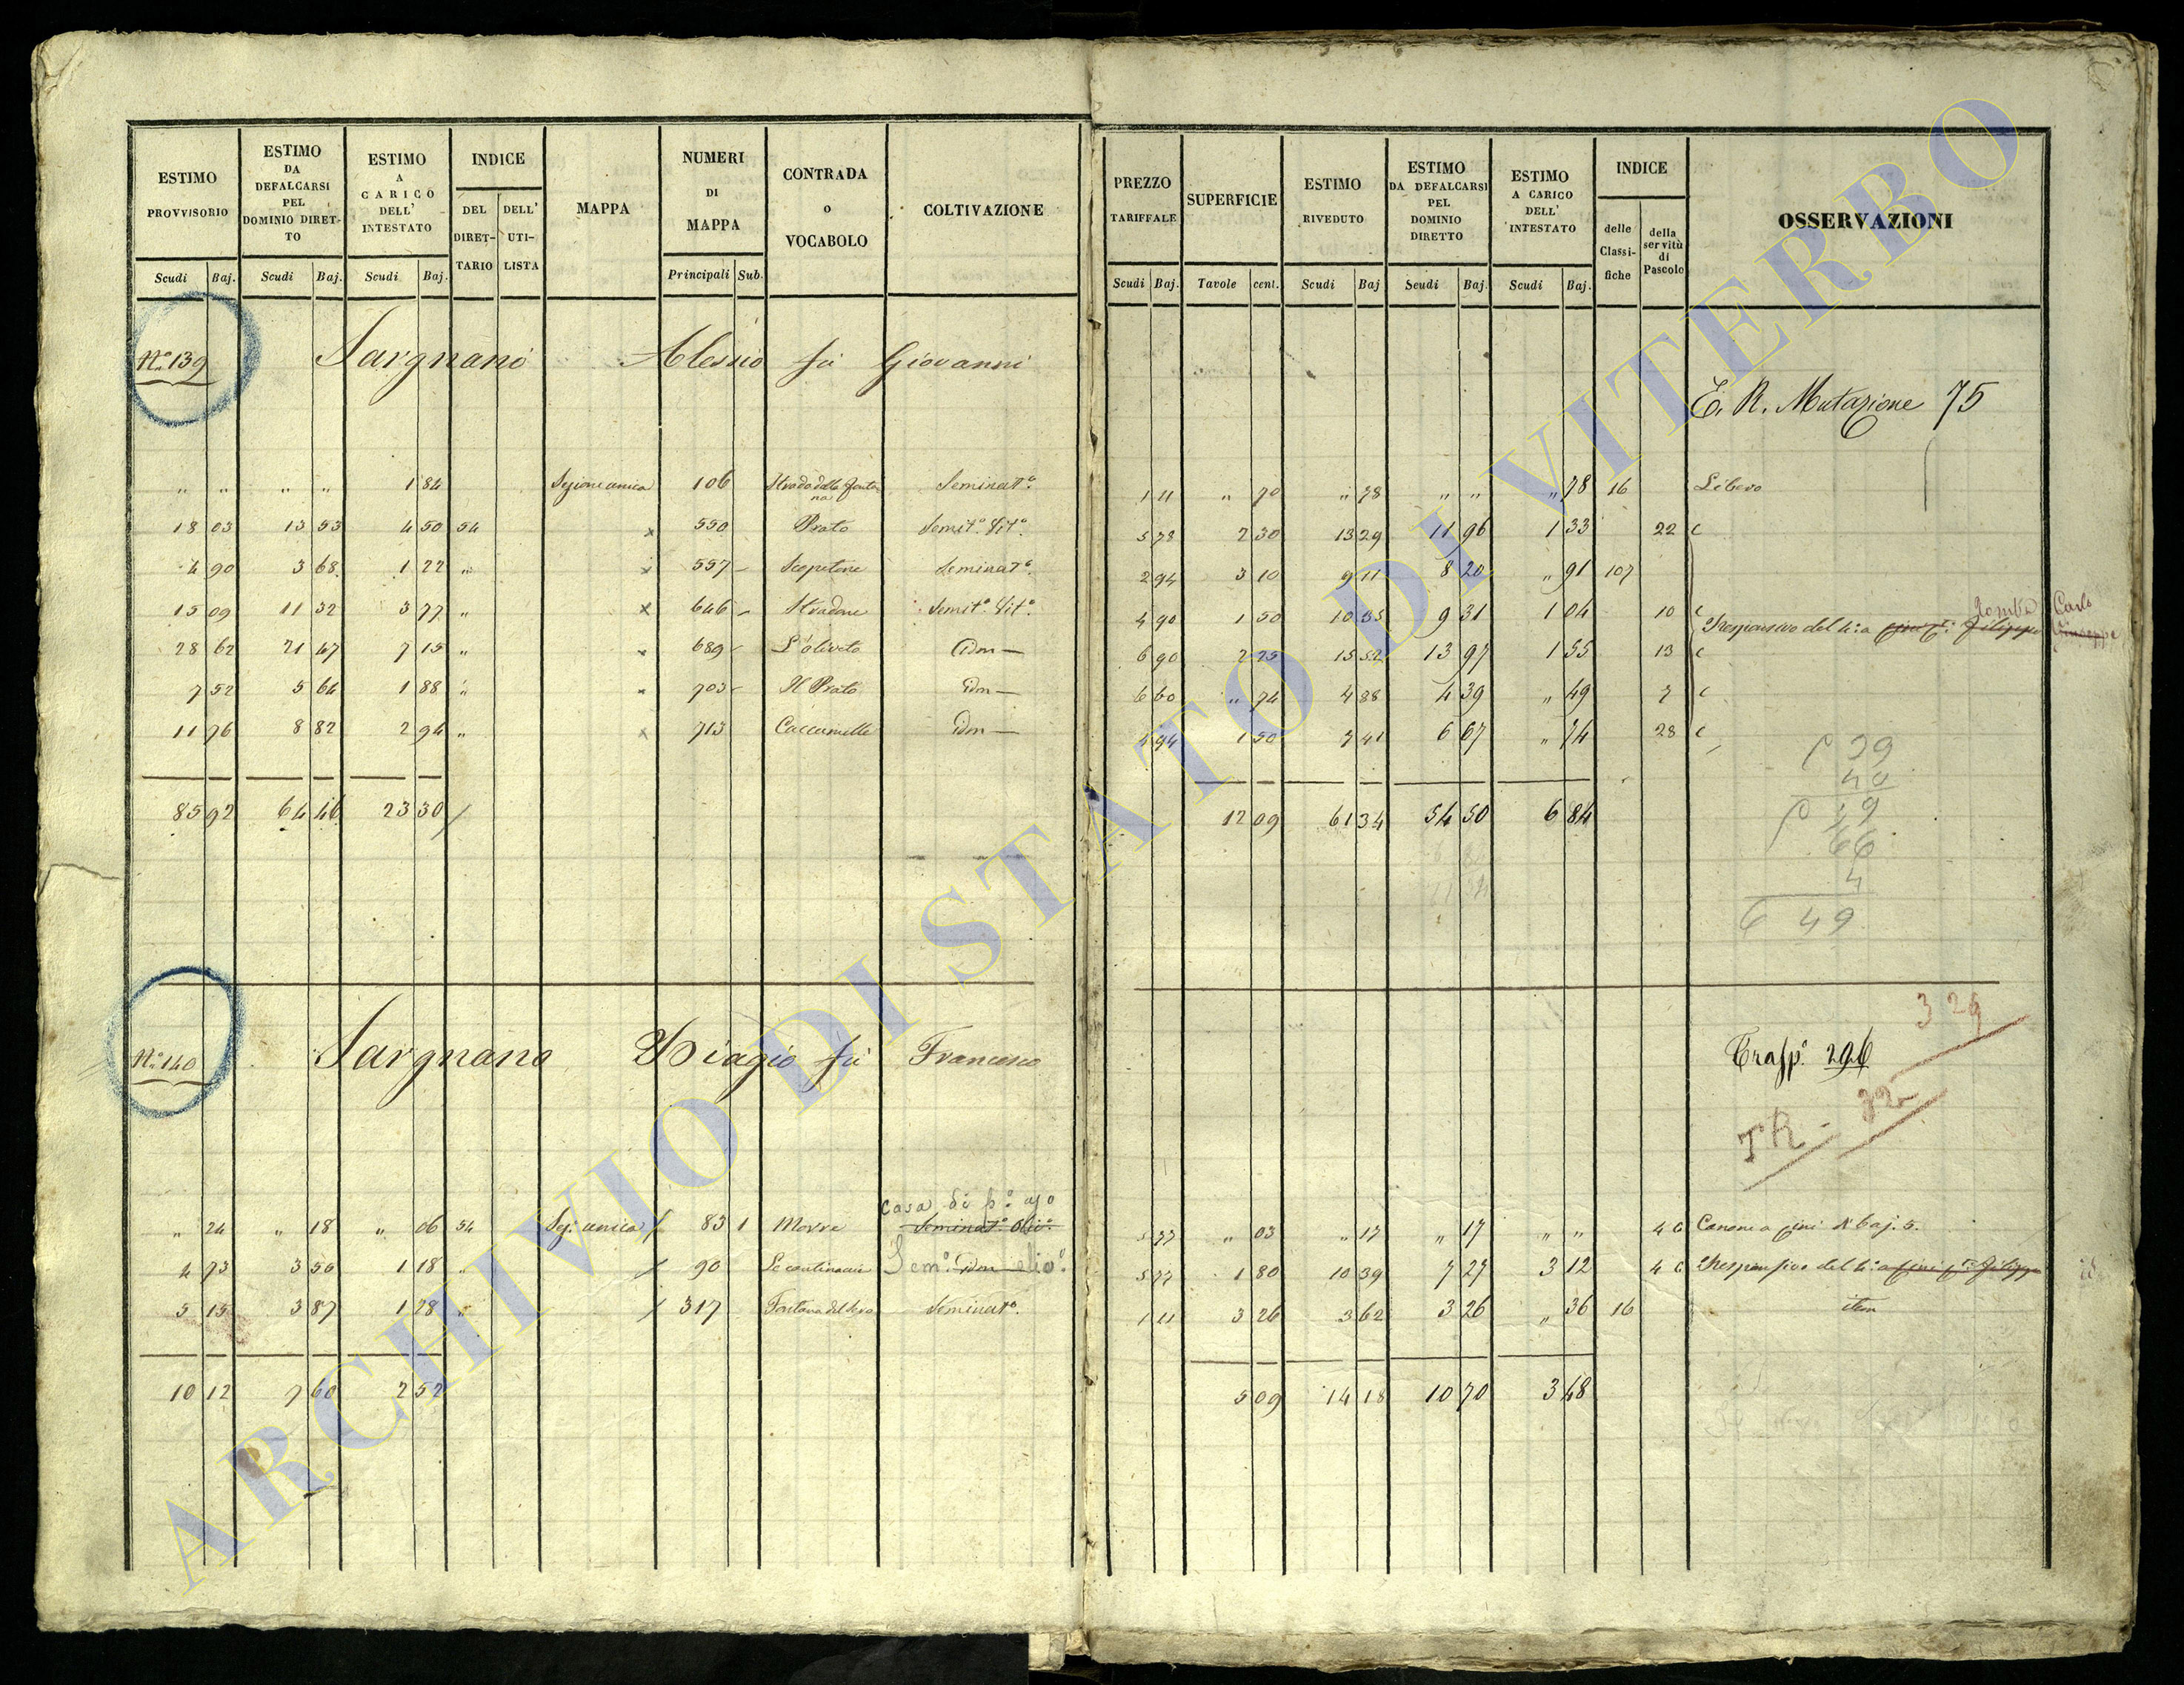 ESTIMO PROVVISORIO | ESTIMO DA DEFALCARSI PEL DOMINIO DIRETTO | ESTIMO A CARICO DELL' INTESTATO | INDICE | MAPPA | NUMERI DI MAPPA | CONTRADA o VOCABOLO | COLTIVAZIONE
DEL DIRETTARIO | DELL' UTILISTA
Scudi | Baj. | Scudi | Baj. | Scudi | Baj. | Principali | Sub.
PREZZO TARIFFALE | SUPERFICIE | ESTIMO RIVEDUTO | ESTIMO DA DEFALCARSI PEL DOMINIO DIRETTO | ESTIMO A CARICO DELL' INTESTATO | INDICE | OSSERVAZIONI
delle Classifiche | della servitù di Pascolo
Scudi | Baj. | Tavole | cent. | Scudi | Baj | Scudi | Baj. | Scudi | Baj.
N.o 139 Sargnano Alessio fù Giovanni
E. R. Mutazione 75
" " | " " | 1 84 | Sezione unica | 106 | Strada della Fontana | Seminat.o | 1 11 | " 70 | " 78 | " " | " 78 | 16 | Libero
18 03 | 13 53 | 4 50 | 54 | x | 550 | Prato | Semit.o Vit.o | 5 78 | 2 30 | 13 29 | 11 96 | 1 33 | 22 c
4 90 | 3 68 | 1 22 | " | x | 557 | Scopetone | Seminat.o | 2 94 | 3 10 | 9 11 | 8 20 | " 91 | 107
15 09 | 11 32 | 3 77 | " | x | 646 | Stradone | Semit.o Vit.o | 6 90 | 1 50 | 10 35 | 9 31 | 1 04 | 10 c
Responsivo del 4.o a Filippo Carlo Giuseppe
28 62 | 21 47 | 7 15 | " | x | 689 | L'oliveto | Idm | 6 90 | 2 25 | 15 52 | 13 97 | 1 55 | 13 c
7 52 | 5 64 | 1 88 | " | x | 703 | Il Prato | Idm | 6 60 | " 74 | 4 88 | 4 39 | " 49 | 7 c
11 76 | 8 82 | 2 94 | " | x | 713 | Caccamelle | Idm | 4 94 | 1 50 | 7 41 | 6 67 | " 74 | 28 c
85 92 | 64 46 | 23 30 | 12 09 | 61 34 | 54 50 | 6 84
39
40
19
66
4
6 49
N.o 140 Sargnano Biagio fù Francesco
329
Trasp.o 296
TR -
casa di p.o uso
" 24 | " 18 | " 06 | 54 | Sez. unica | 83 1 | Morre | Seminat.o Oliv.o | 5 77 | " 03 | " 17 | " 17 | " " | 4 c | Canone a fini di baj. 5.
4 73 | 3 56 | 1 18 | " | 90 | Le cantinaccie | Sem.o Idm oliv.o | 5 77 | 1 80 | 10 39 | 7 27 | 3 12 | 4 c | Responsivo del 4.o a fini f.o Filippo
5 15 | 3 87 | 1 28 | " | 317 | Fontana del | Seminat.o | 1 11 | 3 26 | 3 62 | 3 26 | " 36 | 16 | item
10 12 | 7 60 | 2 52 | 5 09 | 14 18 | 10 70 | 3 48
ARCHIVIO DI STATO DI VITERBO